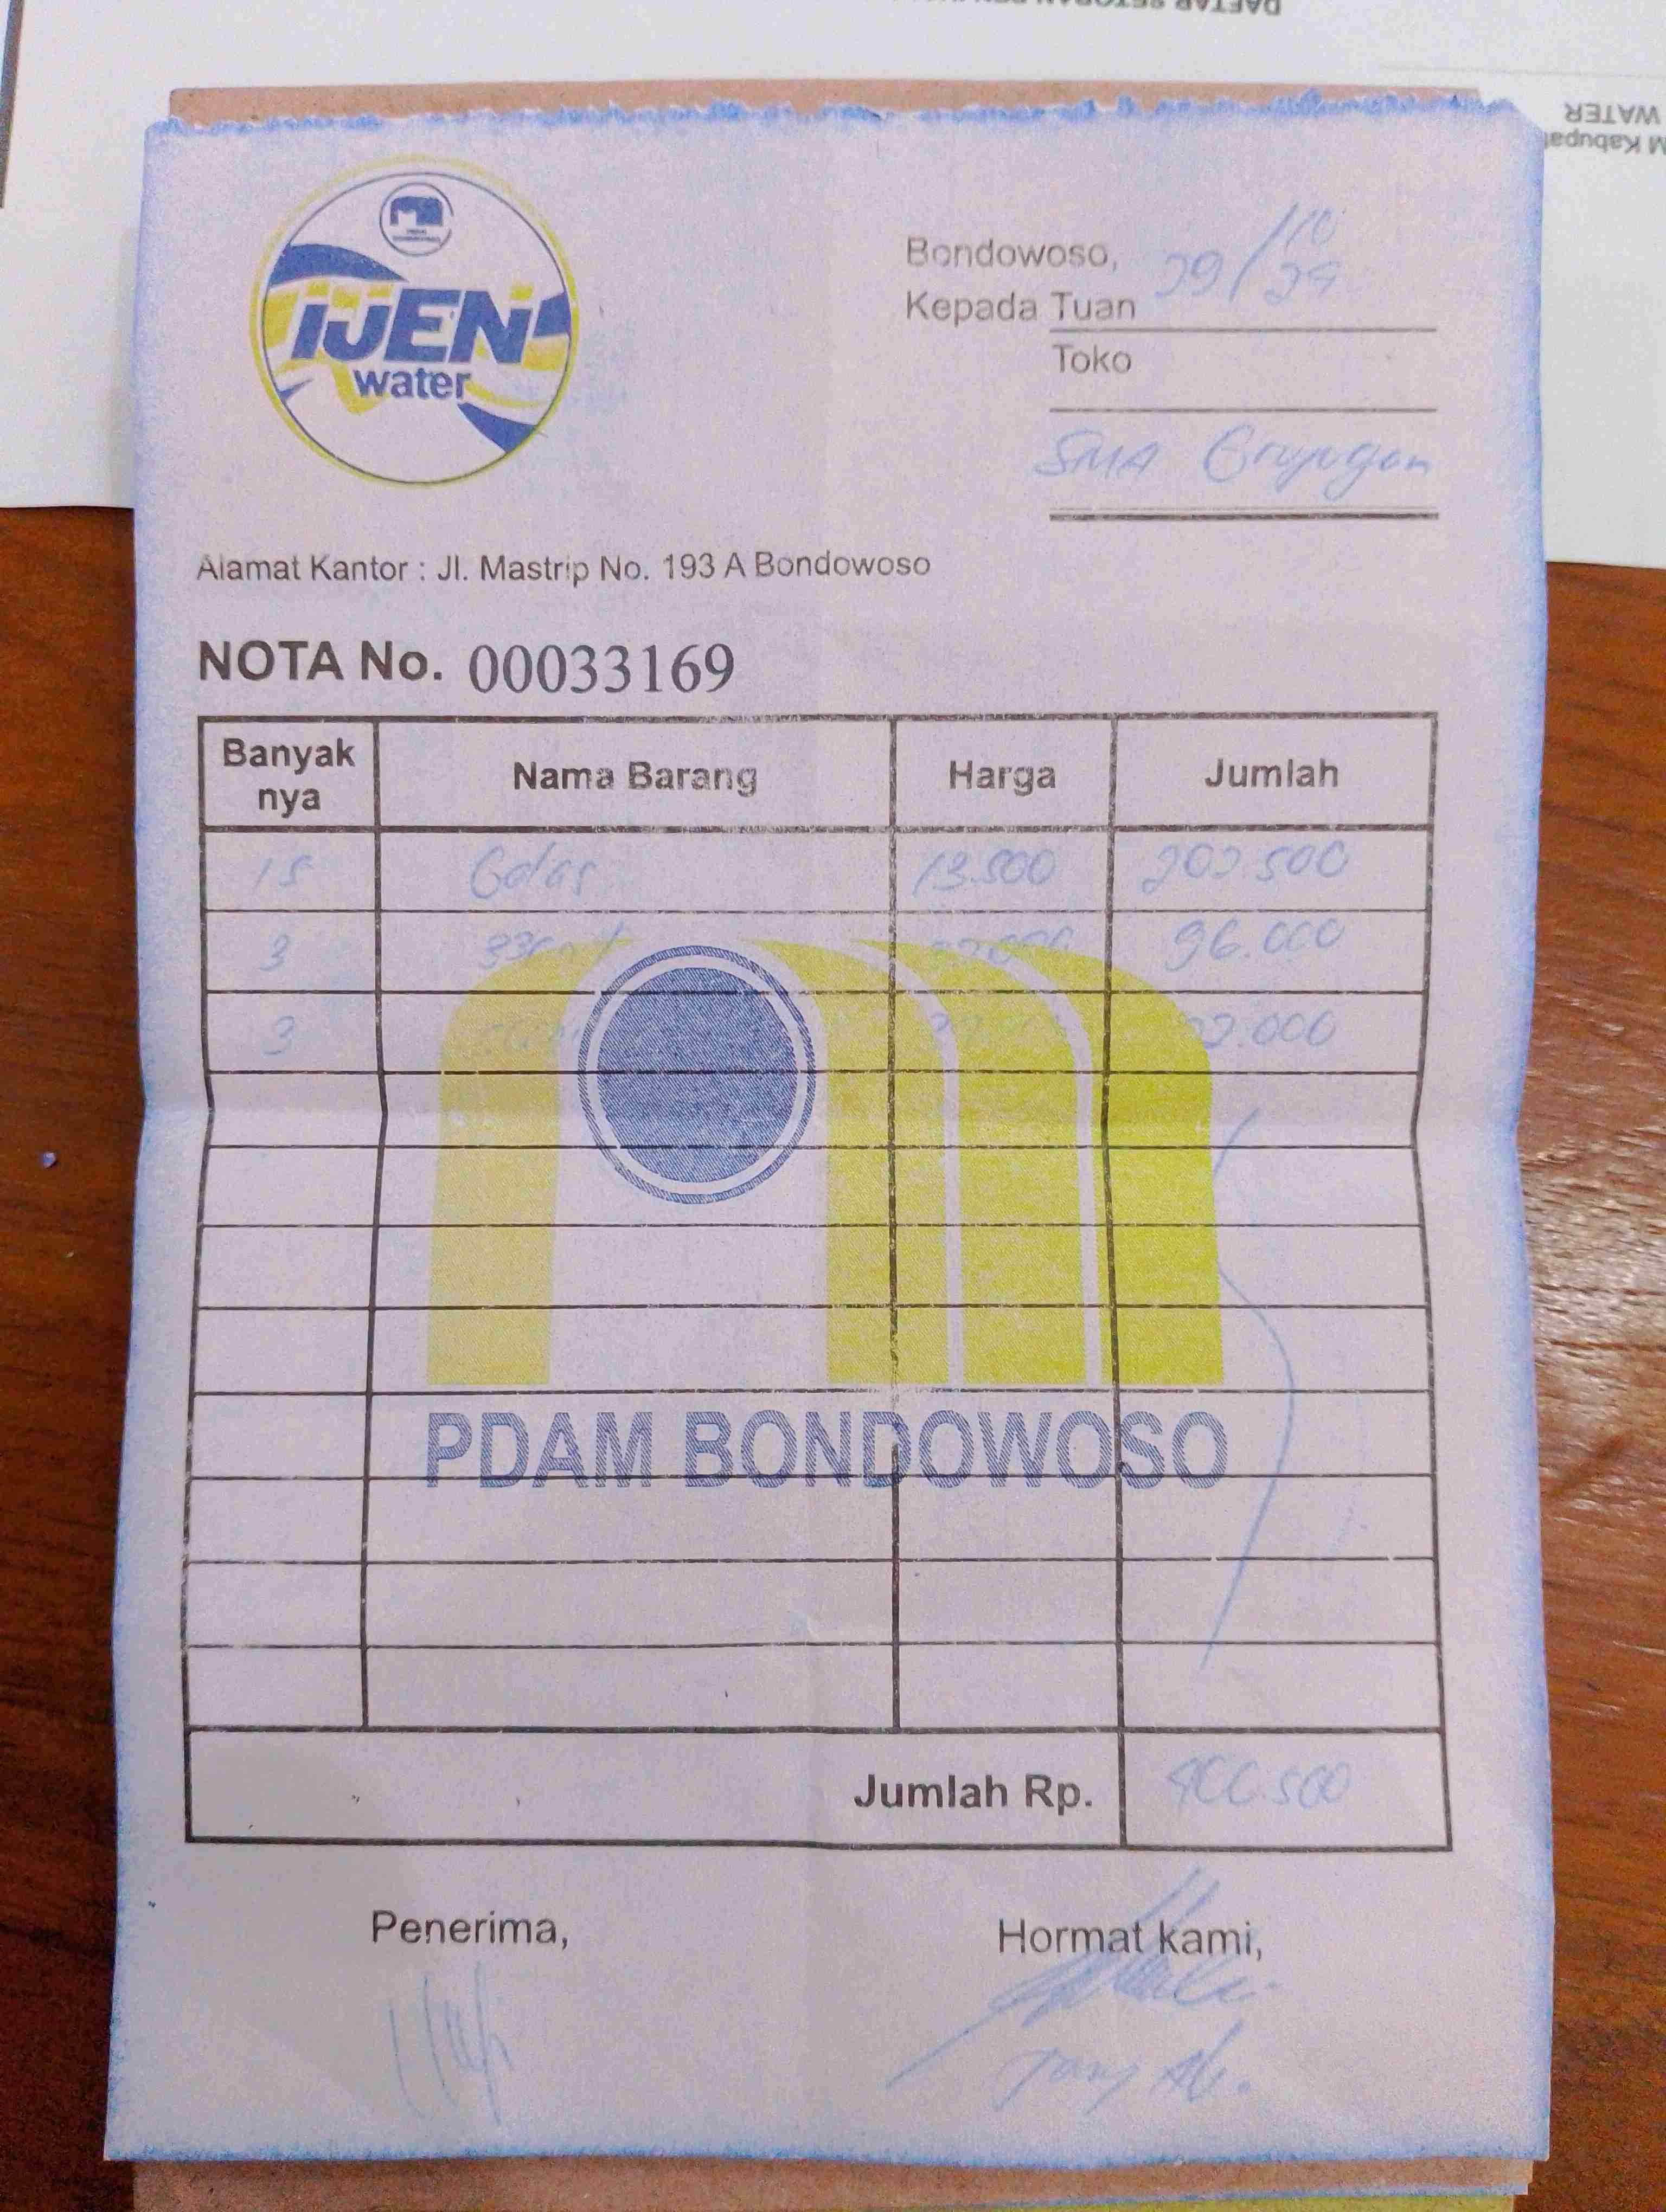 WATER
IJEN
water
Bondowoso, 29/10 24
Kepada Tuan
Toko
SMA Grujugan
Alamat Kantor : Jl. Mastrip No. 193 A Bondowoso
NOTA No. 00033169
Banyak nya Nama Barang Harga Jumlah
15 Gelas 13.500 202.500
3 330 ml 32.000 96.000
3
PDAM BONDOWOSO
Jumlah Rp. 400.500
Penerima, Hormat kami,